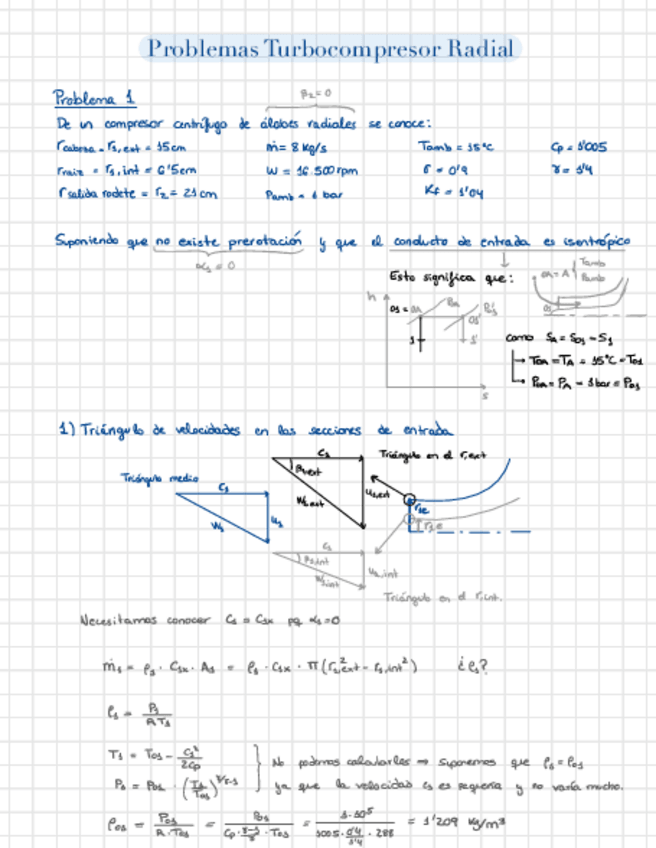 Problemas Turbocompresor Radial
Problema 1
β₂ = 0
De un compresor centrífugo de álabes radiales se conoce:
rcabeza = r₁,ext = 15cm
ṁ = 8 kg/s
Tamb = 15°C
Cp = 1'005
rraiz = r₁,int = 6'5cm
W = 16.500 rpm
σ = 0'9
γ = 1'4
rsalida rodete = r₂ = 21 cm
Pamb = 1 bar
Kf = 1'04
Suponiendo que no existe prerotación y que el conducto de entrada es isentrópico
α₁ = 0
Esto significa que:
0A = A
Tamb
Pamb
h
01 = 0A
P0A
01'
1
1'
s
como SA = S01 = S1
T0A = TA = 15°C = T01
P0A = PA = 1 bar = P01
1) Triángulo de velocidades en las secciones de entrada
Triángulo en el r,ext
C₁
β₁,ext
W₁,ext
U₁,ext
Triángulo medio
C₁
W₁
U₁
r1e
C₁
β₁,int
W₁,int
U₁,int
Triángulo en el r,int.
Necesitamos conocer C₁ = C₁x pq α₁=0
ṁ₁ = ρ₁ · C₁x · A₁ = ρ₁ · C₁x · π (r₁,ext² - r₁,int²) ¿ρ₁?
ρ₁ = P₁ / R T₁
T₁ = T₀₁ - C₁² / 2Cp
P₁ = P₀₁ · (T₁ / T₀₁)^γ/γ-1
No podemos calcularlas → suponemos que ρ₁ = ρ₀₁
ya que la velocidad c₁ es pequeña y no varía mucho.
ρ₀₁ = P₀₁ / R · T₀₁ = P₀₁ / Cp · γ-1/γ · T₀₁ = 1·10⁵ / 1005 · 0'4/1'4 · 288 = 1'209 kg/m³